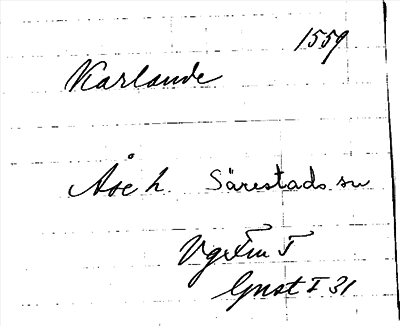 1559
Karlande
Åse h. Särestads sn
Vg Fru I
Gnst I 31